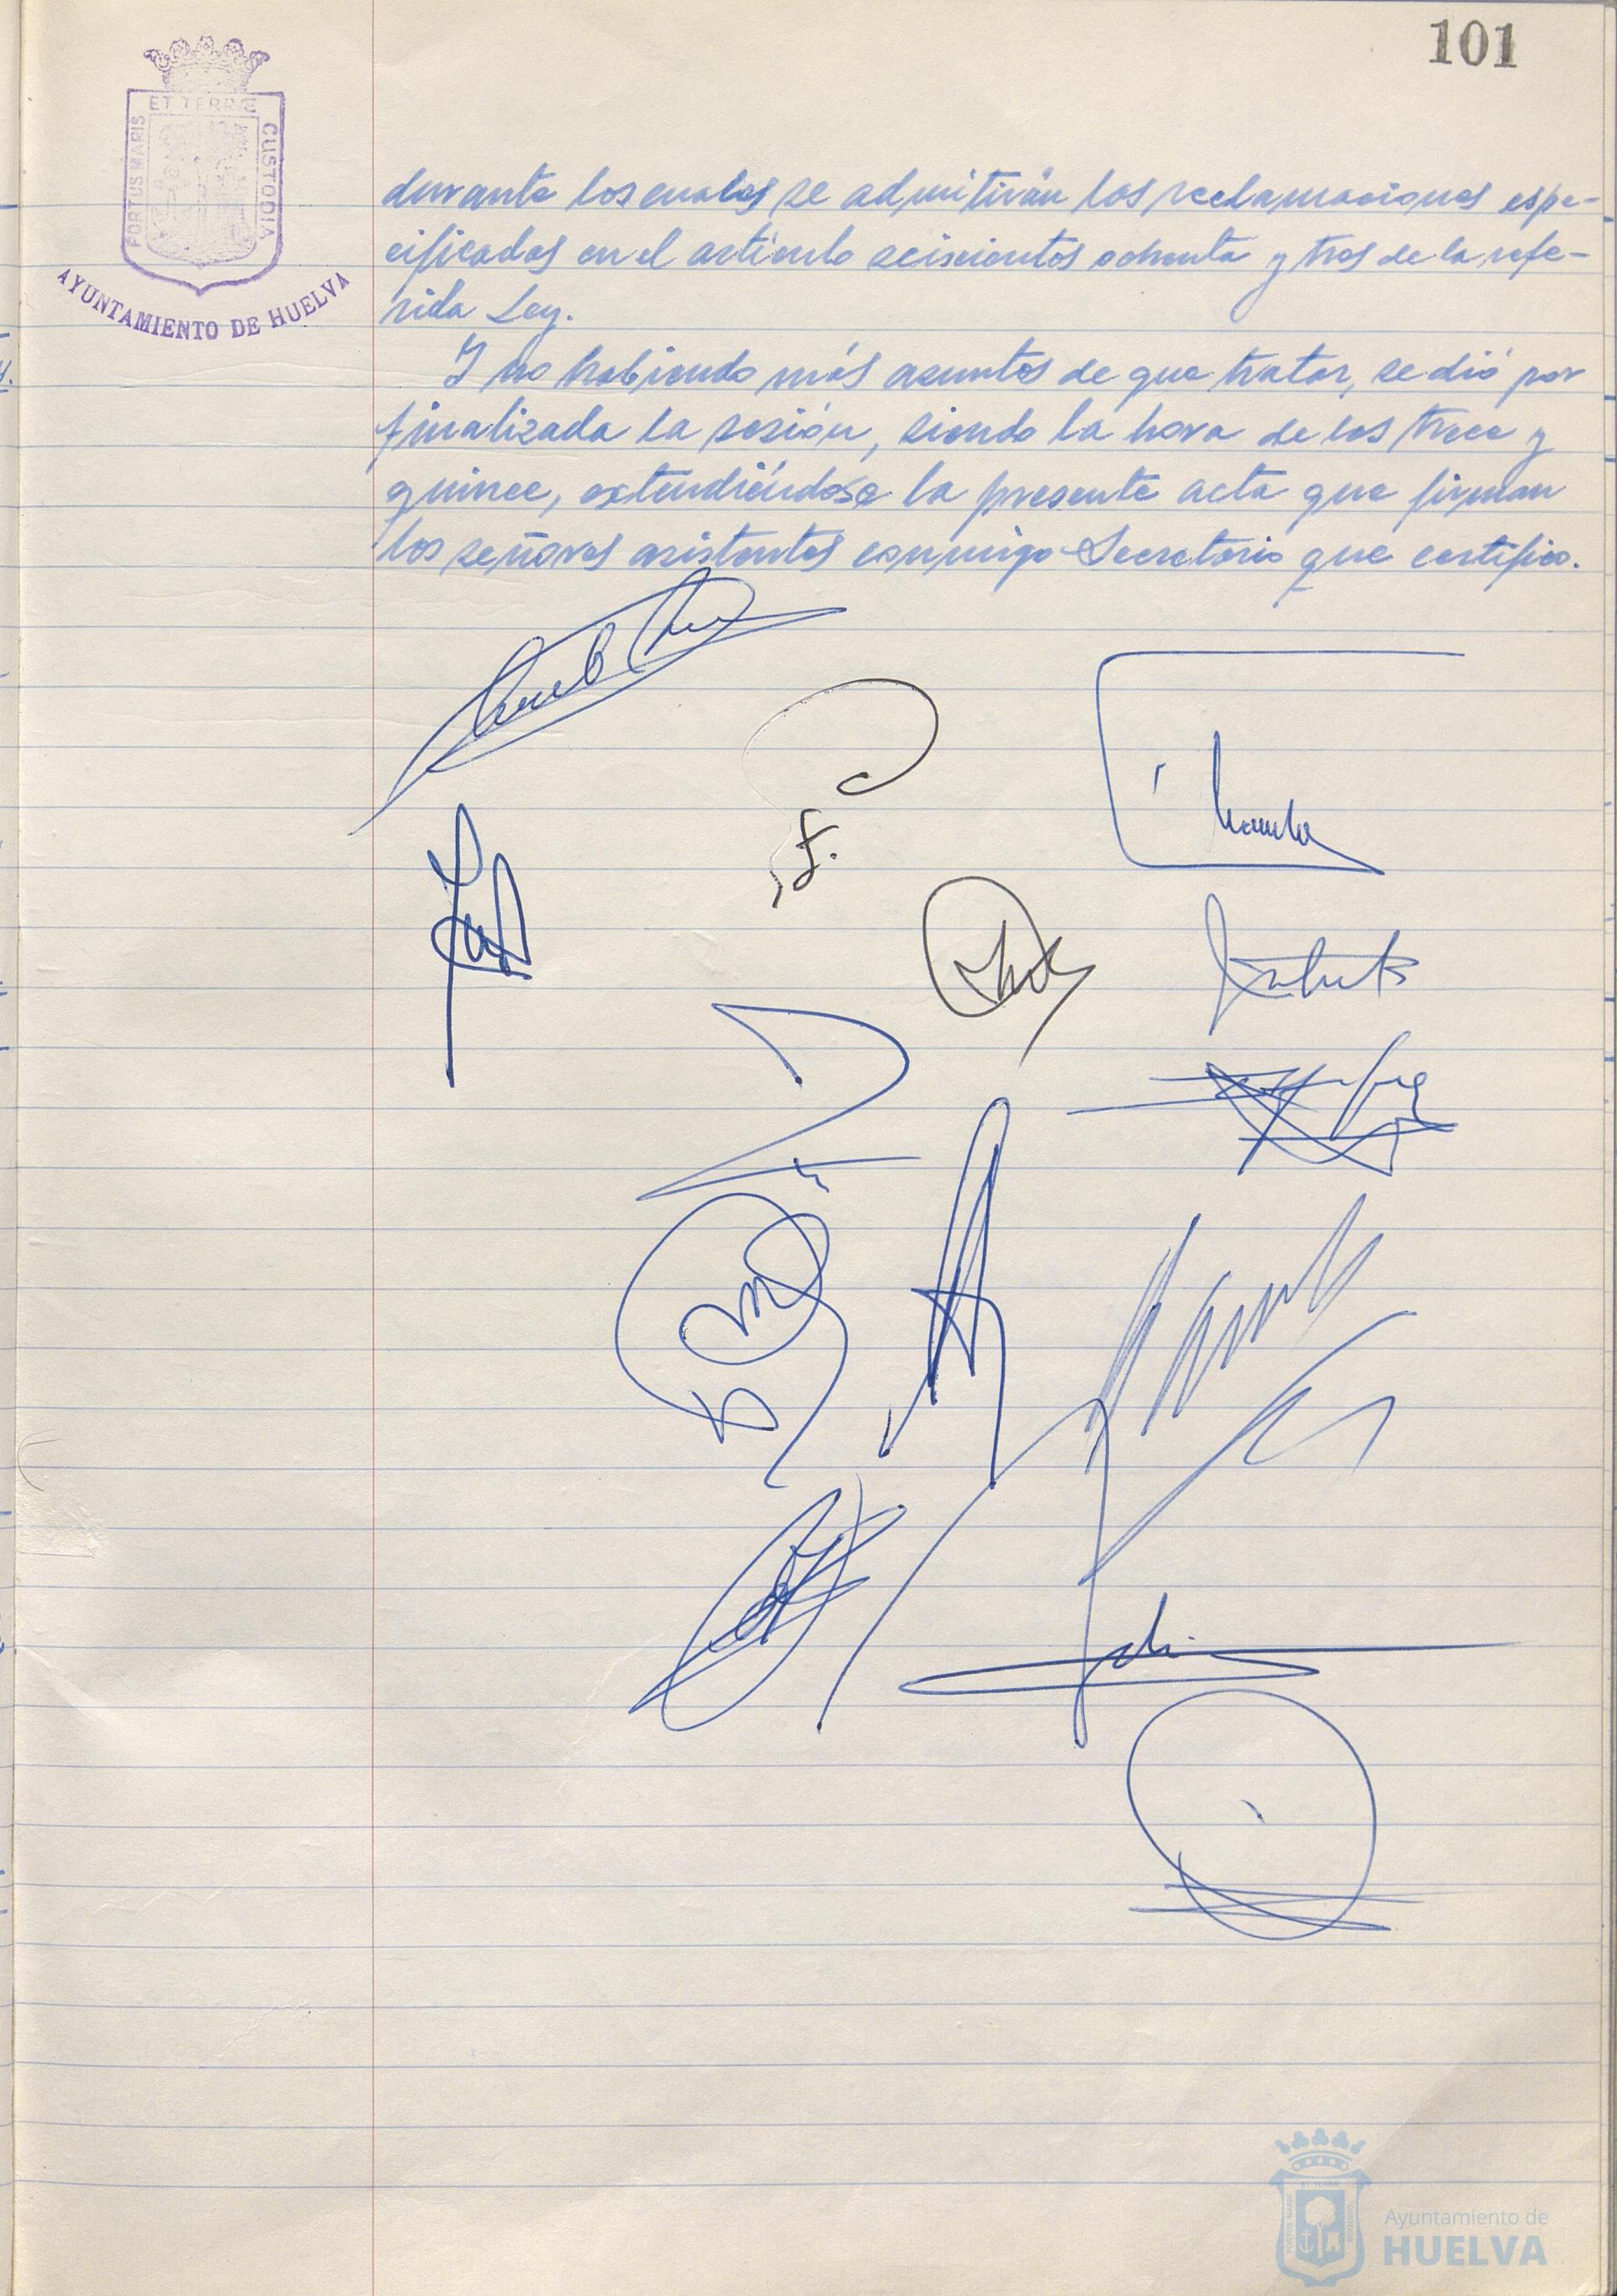 101
ET TERRÆ
PORTUS MARIS
CUSTODIA
AYUNTAMIENTO DE HUELVA
durante los cuales se admitirán las reclamaciones espe-
cificadas en el artículo seiscientos ochenta y tres de la refe-
rida Ley.
Y no habiendo más asuntos de que tratar, se dió por
finalizada la sesión, siendo la hora de las trece y
quince, extendiéndose la presente acta que firman
los señores asistentes conmigo Secretario que certifico.
Ayuntamiento de
HUELVA